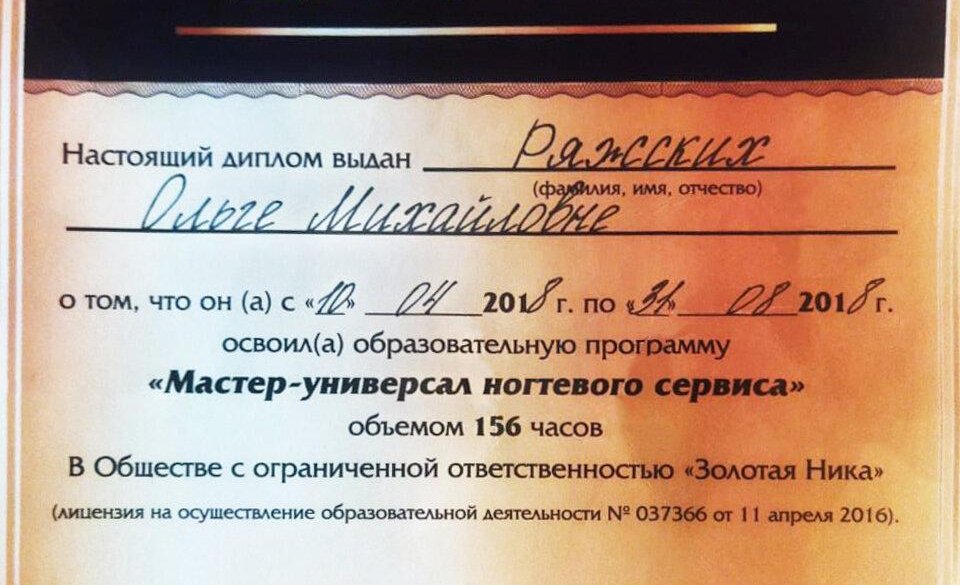 Настоящий диплом выдан Ряжских
(фамилия, имя, отчество)
Ольге Михайловне
о том, что он (а) с «10» 04 2018 г. по «31» 08 2018 г.
освоил(а) образовательную программу
«Мастер-универсал ногтевого сервиса»
объемом 156 часов
В Обществе с ограниченной ответственностью «Золотая Ника»
(лицензия на осуществление образовательной деятельности № 037366 от 11 апреля 2016).